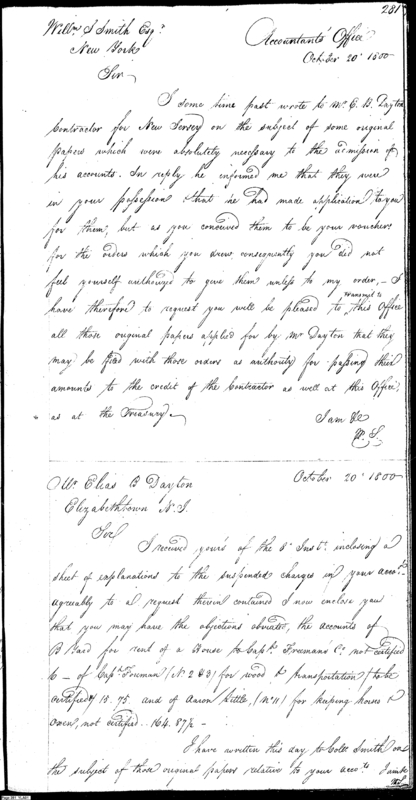 281
Willm S Smith Esqr
New York
Accountants Office
October 20th 1800
Sir
I some time past wrote to Mr E. B. Dayton
Contractor for New Jersey on the subject of some original
papers which were absolutely necessary to the admission of
his accounts. In reply he informed me that they were
in your possession that he had made application to you
for them, but as you conceived them to be your vouchers
for the orders which you drew, consequently you did not
feel yourself authorized to give them unless to my order, – I
have therefore to request you will be pleased to transmit to this Office
all those original papers applied for by Mr Dayton that they
may be filed with those orders as authority for passing their
amounts to the credit of the Contractor as well at this Office
as at the Treasury.
I am &c
W. S.
Mr Elias B Dayton
October 20th 1800
Elizabethtown N. J.
Sir
I received yours of the 8th Inst. inclosing a
sheet of explanations to the suspended charges in your accots
agreeably to a request therein contained I now enclose you
that you may have the objections obviated, the accounts of
B Ladd for rent of a House to Capt. Freemans Co. not certified
6 – of Capt Freeman (No 2 & 3) for wood & transportation (to be
certified) 15.75 and of Aaron Kittle, (No 11) for keeping horses &
Oxen, not certified .. 164.87½ –
I have written this day to Coll Smith on
the subject of those original papers relative to your accots I am &c
W. S.